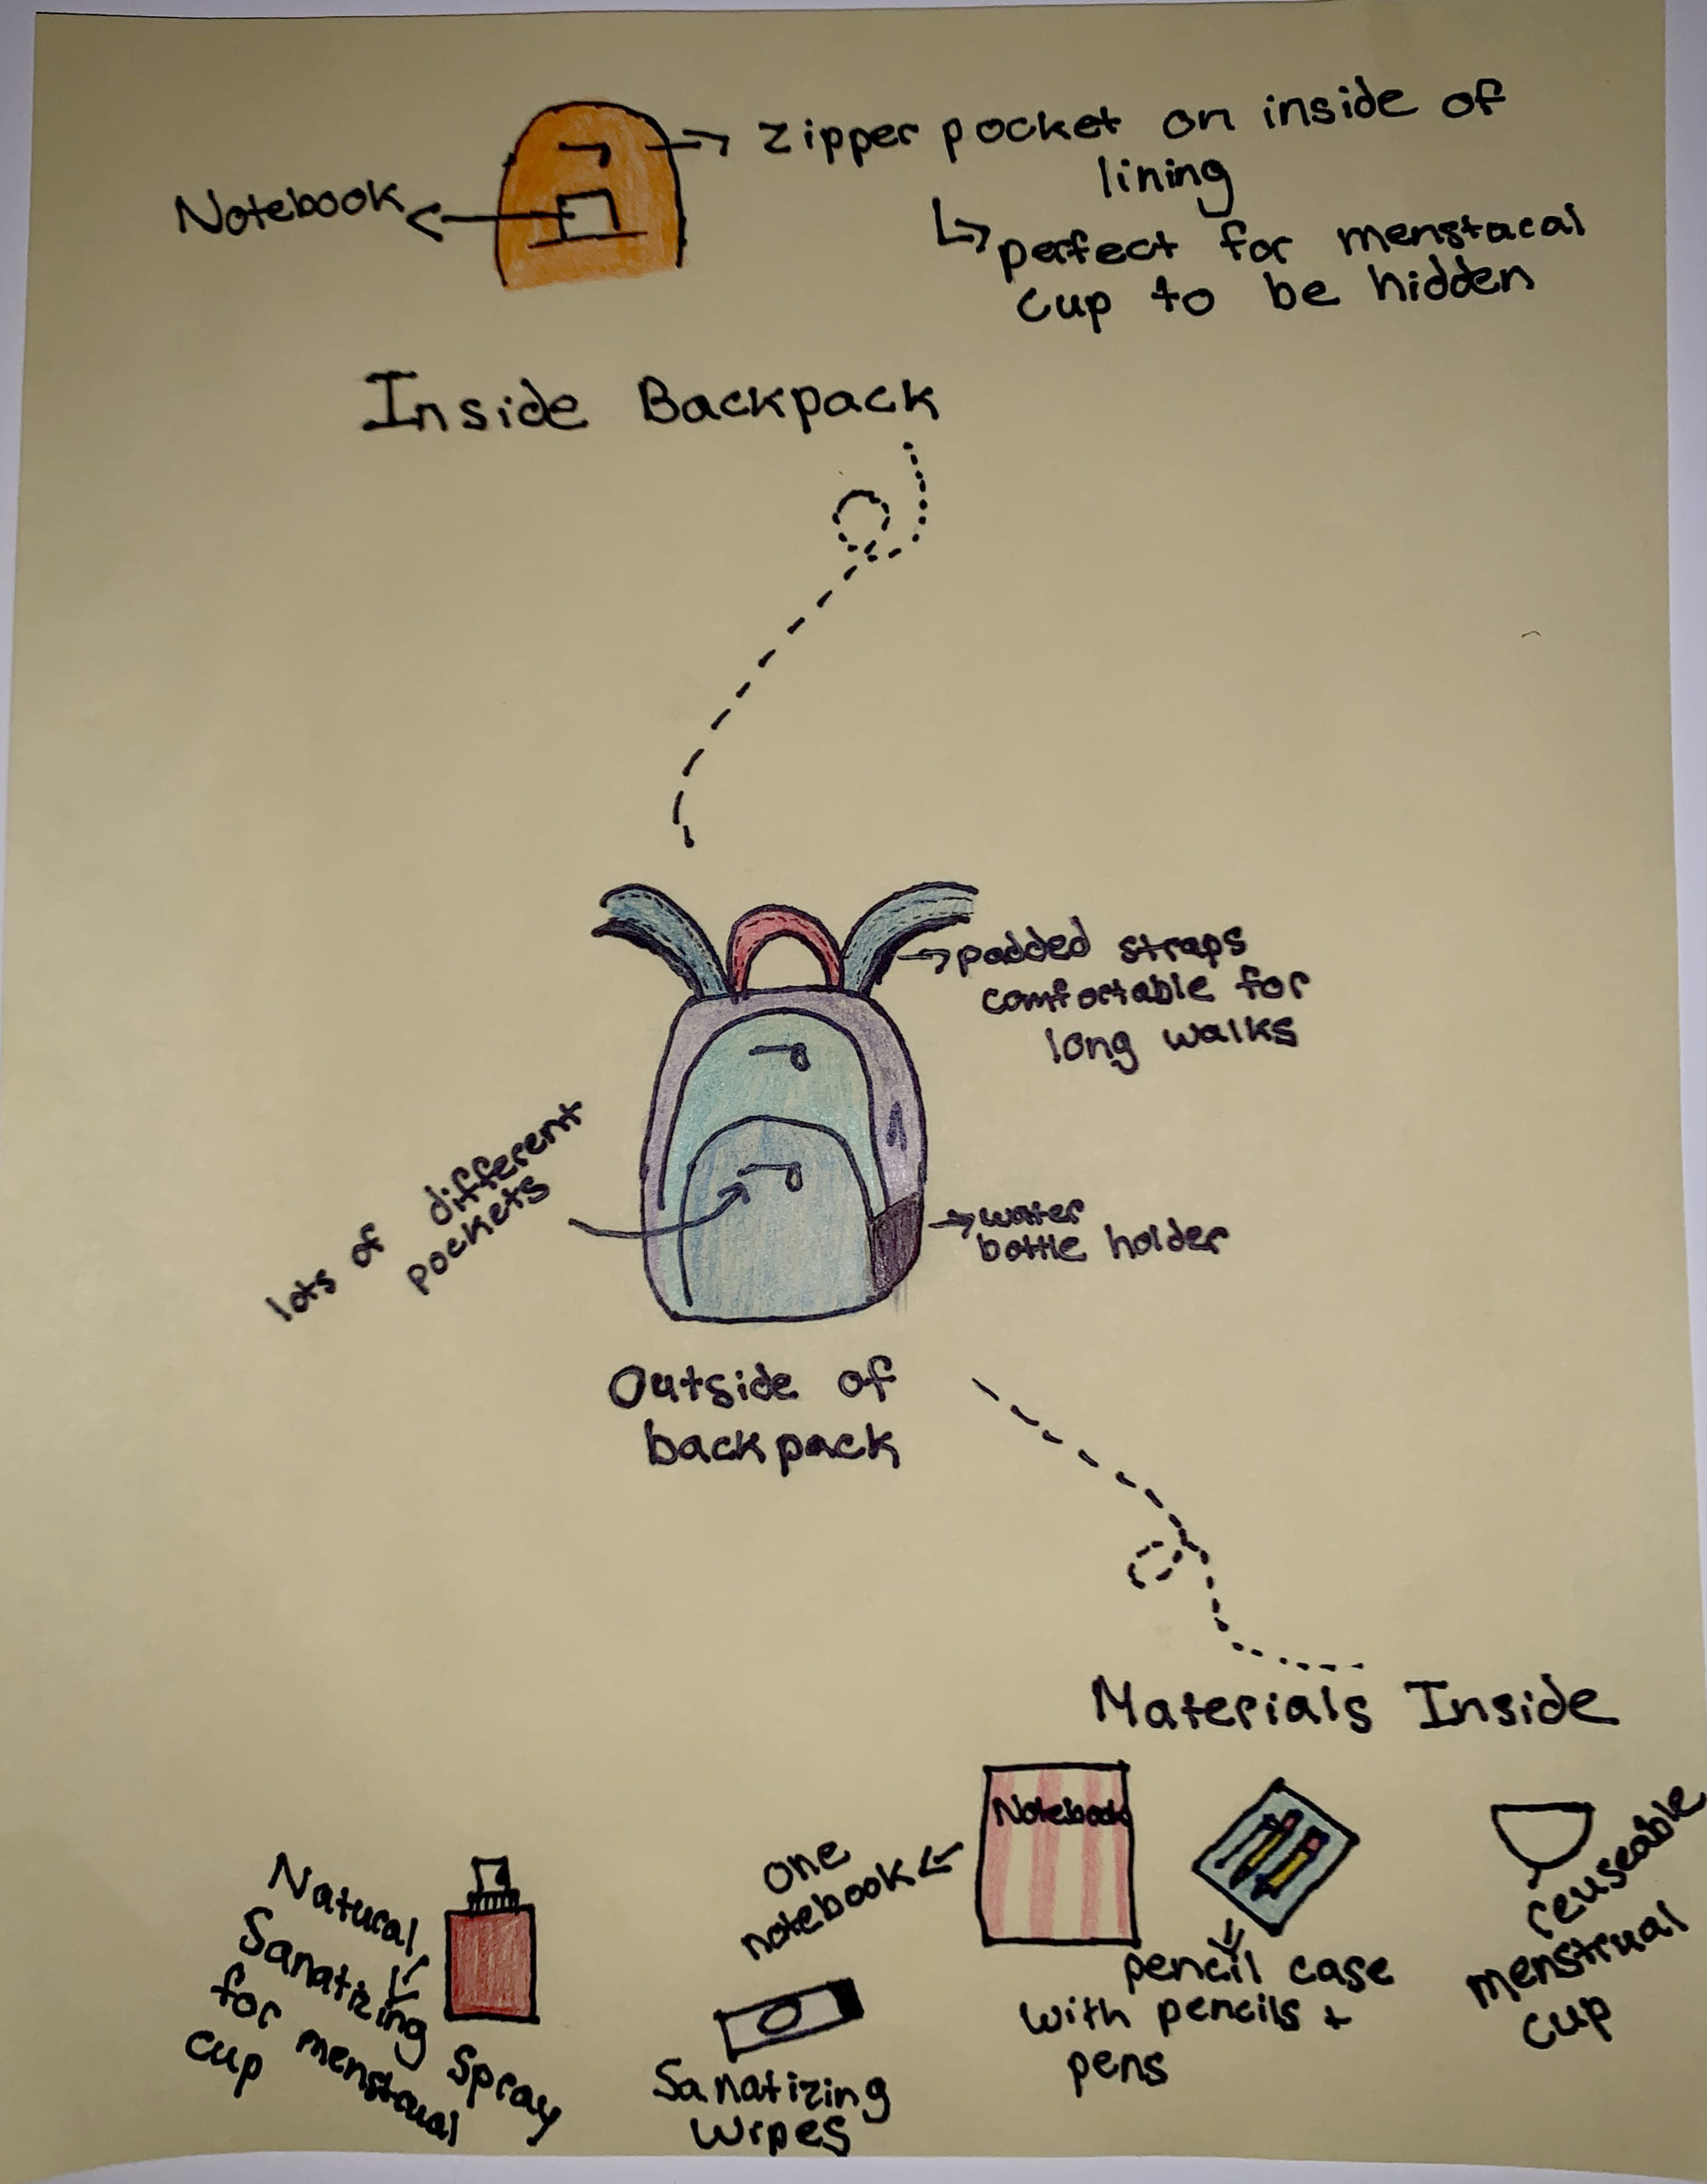 Zipper pocket on inside of
lining
perfect for menstacal
cup to be hidden
Notebook
Inside Backpack
padded straps
comfortable for
long walks
lots of different
pockets
water
bottle holder
Outside of
backpack
Materials Inside
Notebook
one
notebook
pencil case
with pencils +
pens
reuseable
menstrual
cup
Natural
Sanatizing Spray
for menstrual
cup
Sanatizing
Wipes